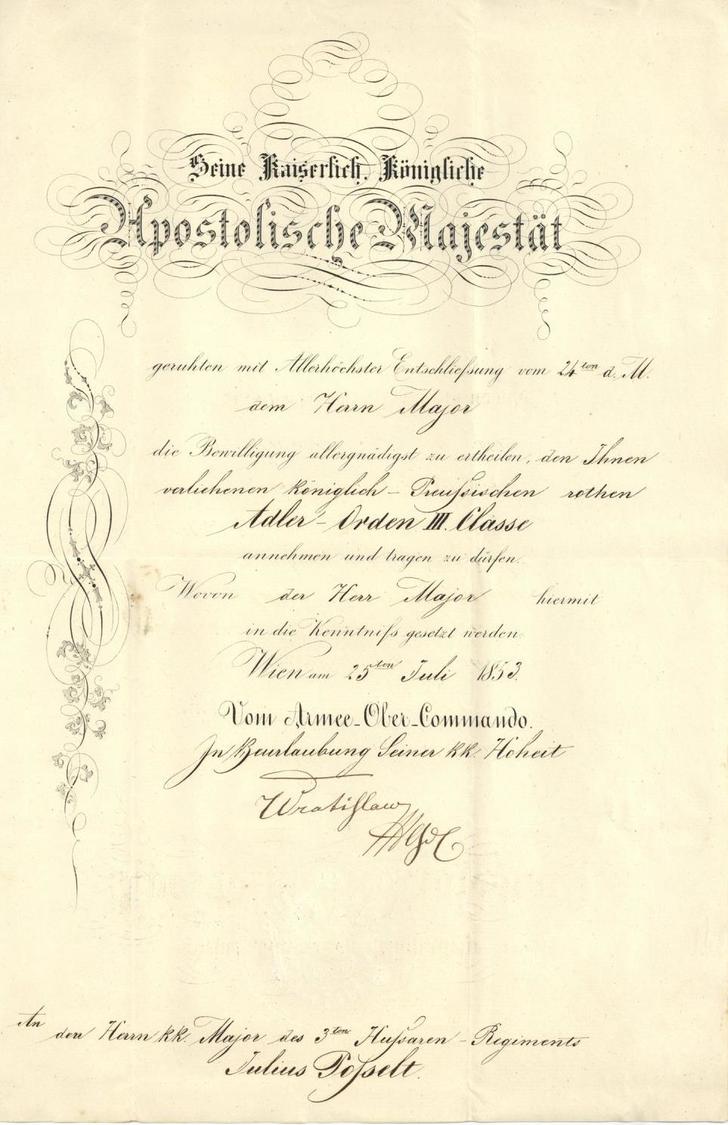 Seine Kaiserlich, Königliche
Apostolische Majestät
geruhten mit Allerhöchster Entschließung vom 24ten d. M.
dem Herrn Major
die Bewilligung allergnädigst zu ertheilen, den Ihnen
verliehenen königlich-Preußischen rothen
Adler-Orden III. Classe
annehmen und tragen zu dürfen.
Wovon der Herr Major hiermit
in die Kenntniß gesetzt werden
Wien am 25ten Juli 1853.
Vom Armee-Ober-Commando.
In Beurlaubung Seiner kk. Hoheit
Wratislaw
GdC
An
den Herrn kk. Major des 3ten Hußaren-Regiments
Julius Posselt.